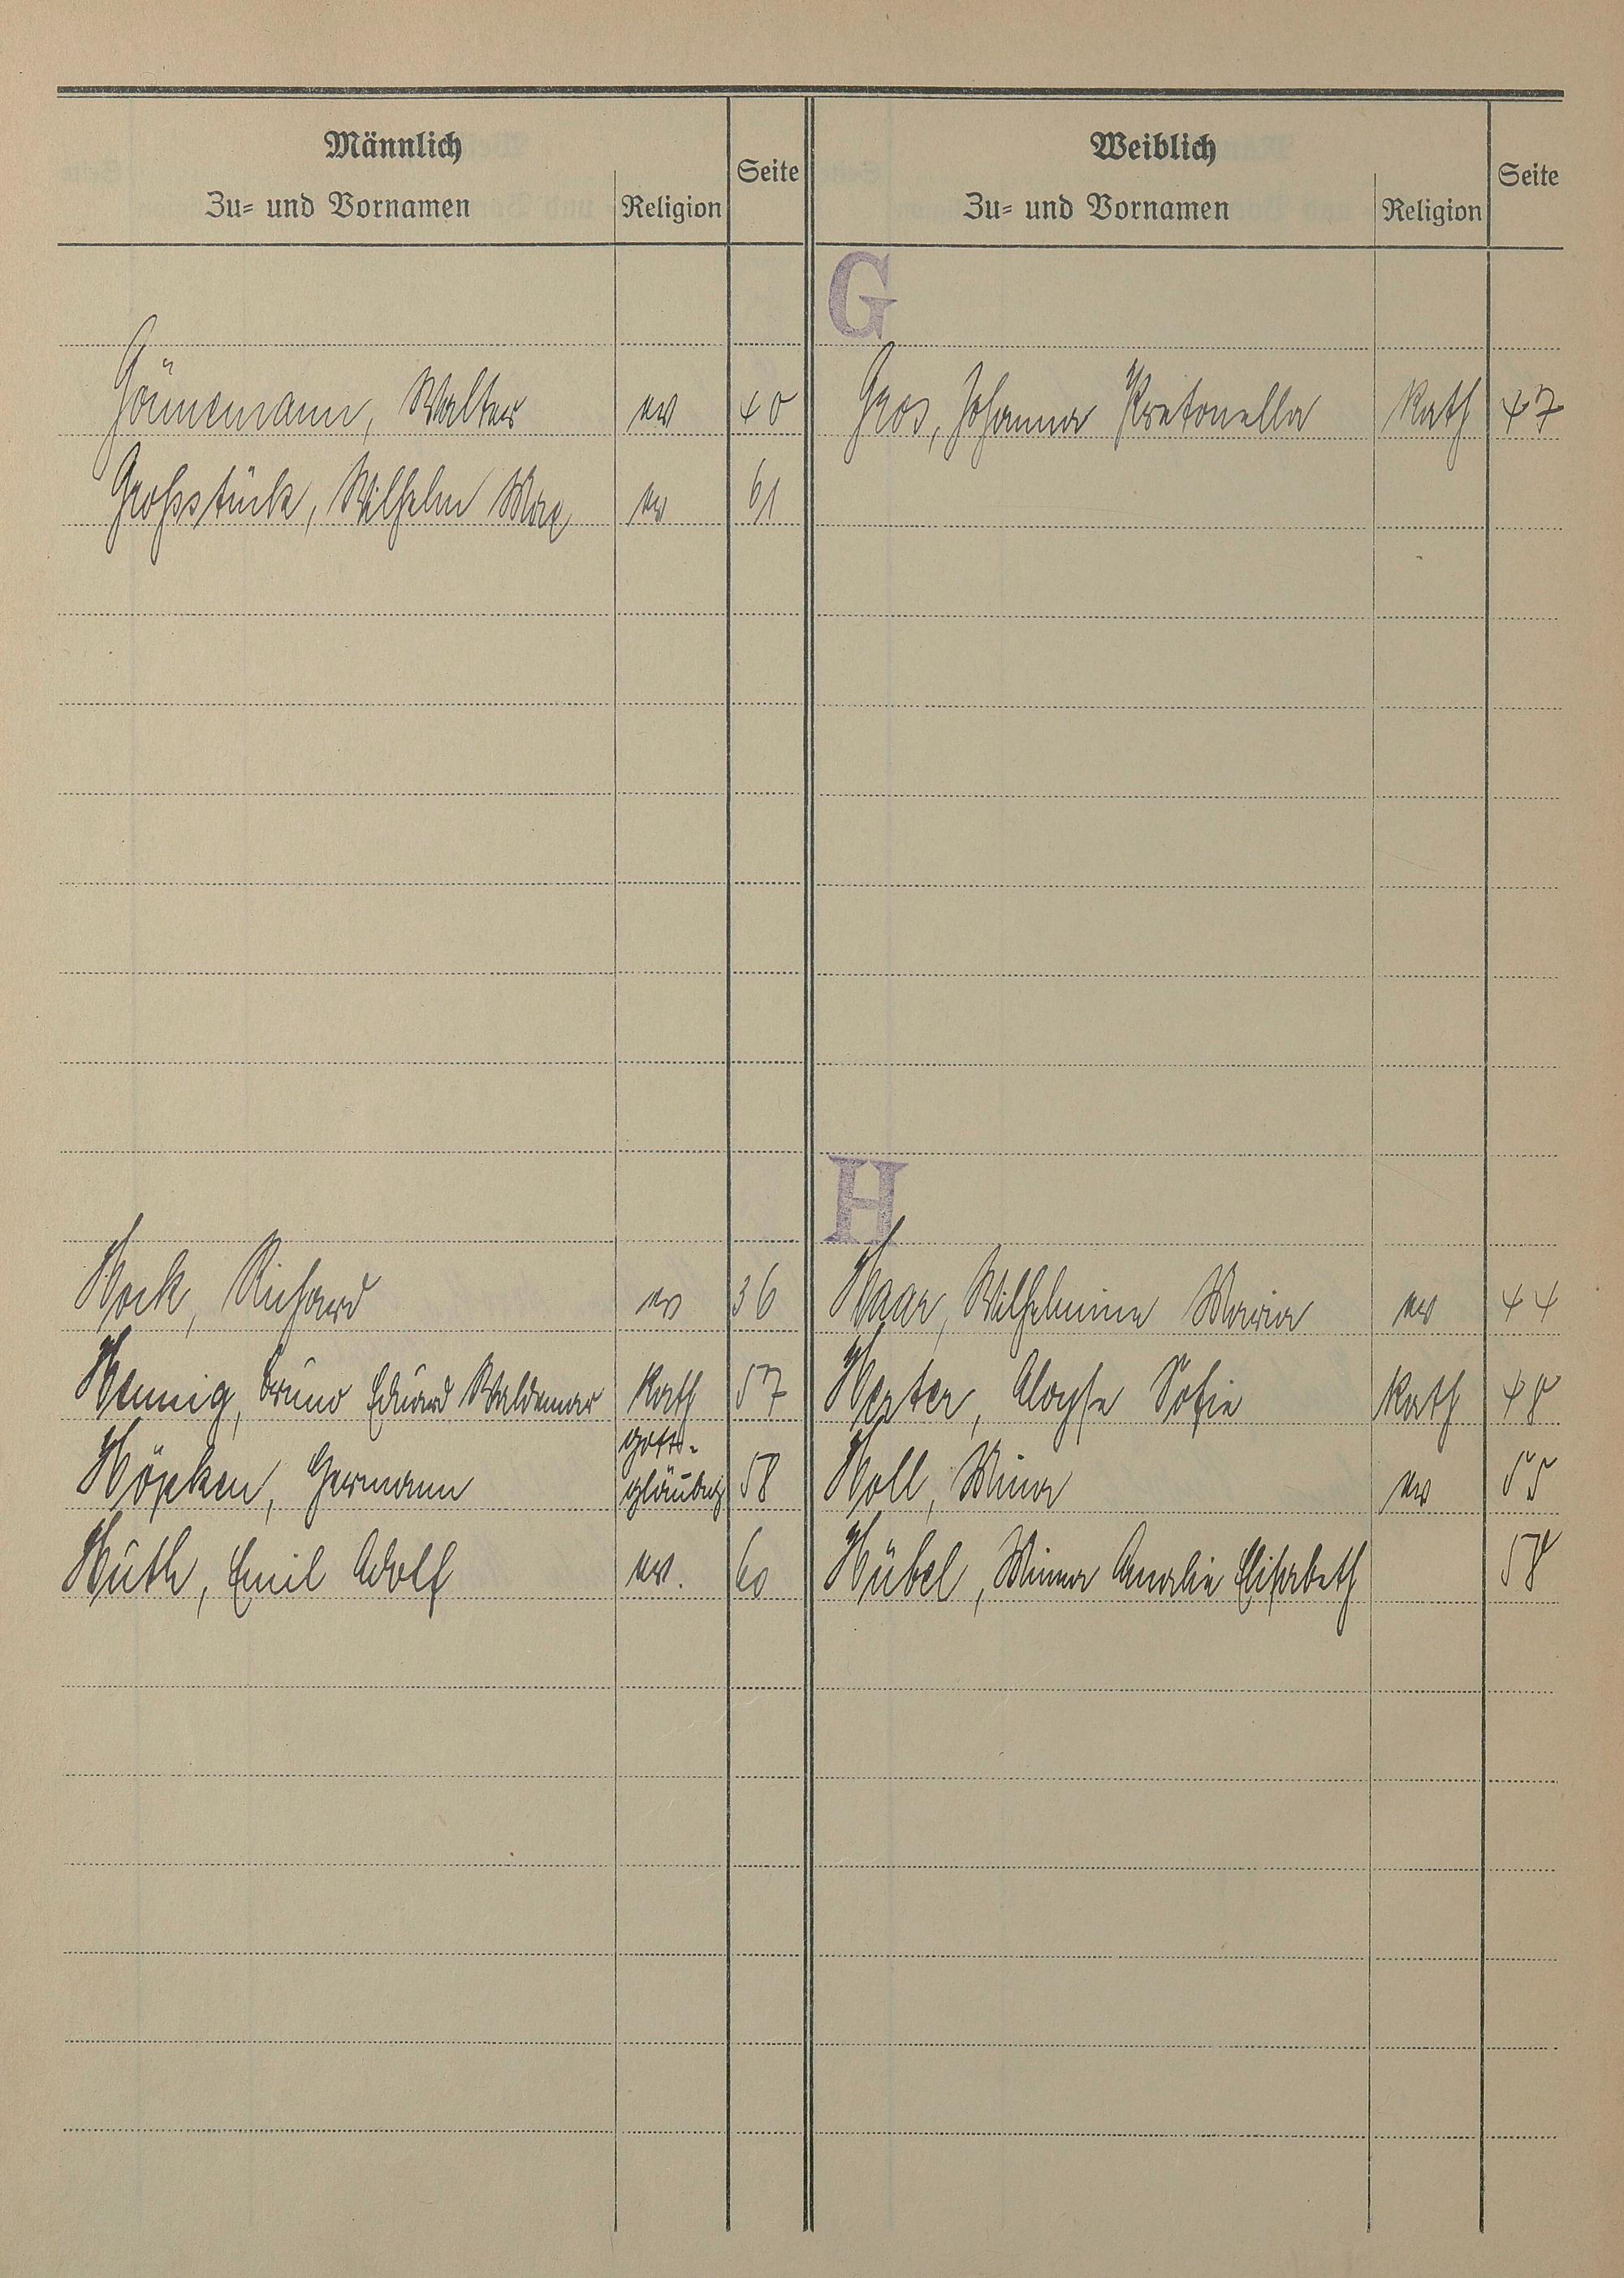 Männlich
Zu= und Vornamen
Religion
Seite
Weiblich
Zu= und Vornamen
Religion
Seite
G
Gönnemann, Walter ev 40
Gros, Johanna Pretonella Kath 47
Grossstück, Wilhelm Max ev 61
H
Hock, Richard ev 36
Haar, Wilhelmine Maria ev 44
Hennig, Bruno Eduard Waldemar Kath 57
Herter, Aloyse Sofie Kath 48
Höpken, Hermann gott-
gläubig 58
Holl, Mina ev 55
Huth, Emil Adolf ev. 60
Hübel, Minna Amalie Elisabeth 58